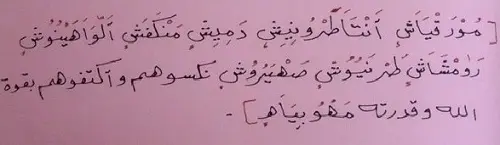 [مُوْرَقْيَاشٍ أَنْتَاَطْرُونِيشٍ دَمِيشٍ مَنْكَفَشٍ أَلْوَاهَيْنُوشٍ
رَوَمْشَاشٍ طَرْنَيُوُشٍ صَهْيَرُوشٍ نكسوهم وأكتفوهم بقوة
الله وقدرته مَهْوبِيَاهٍ] -